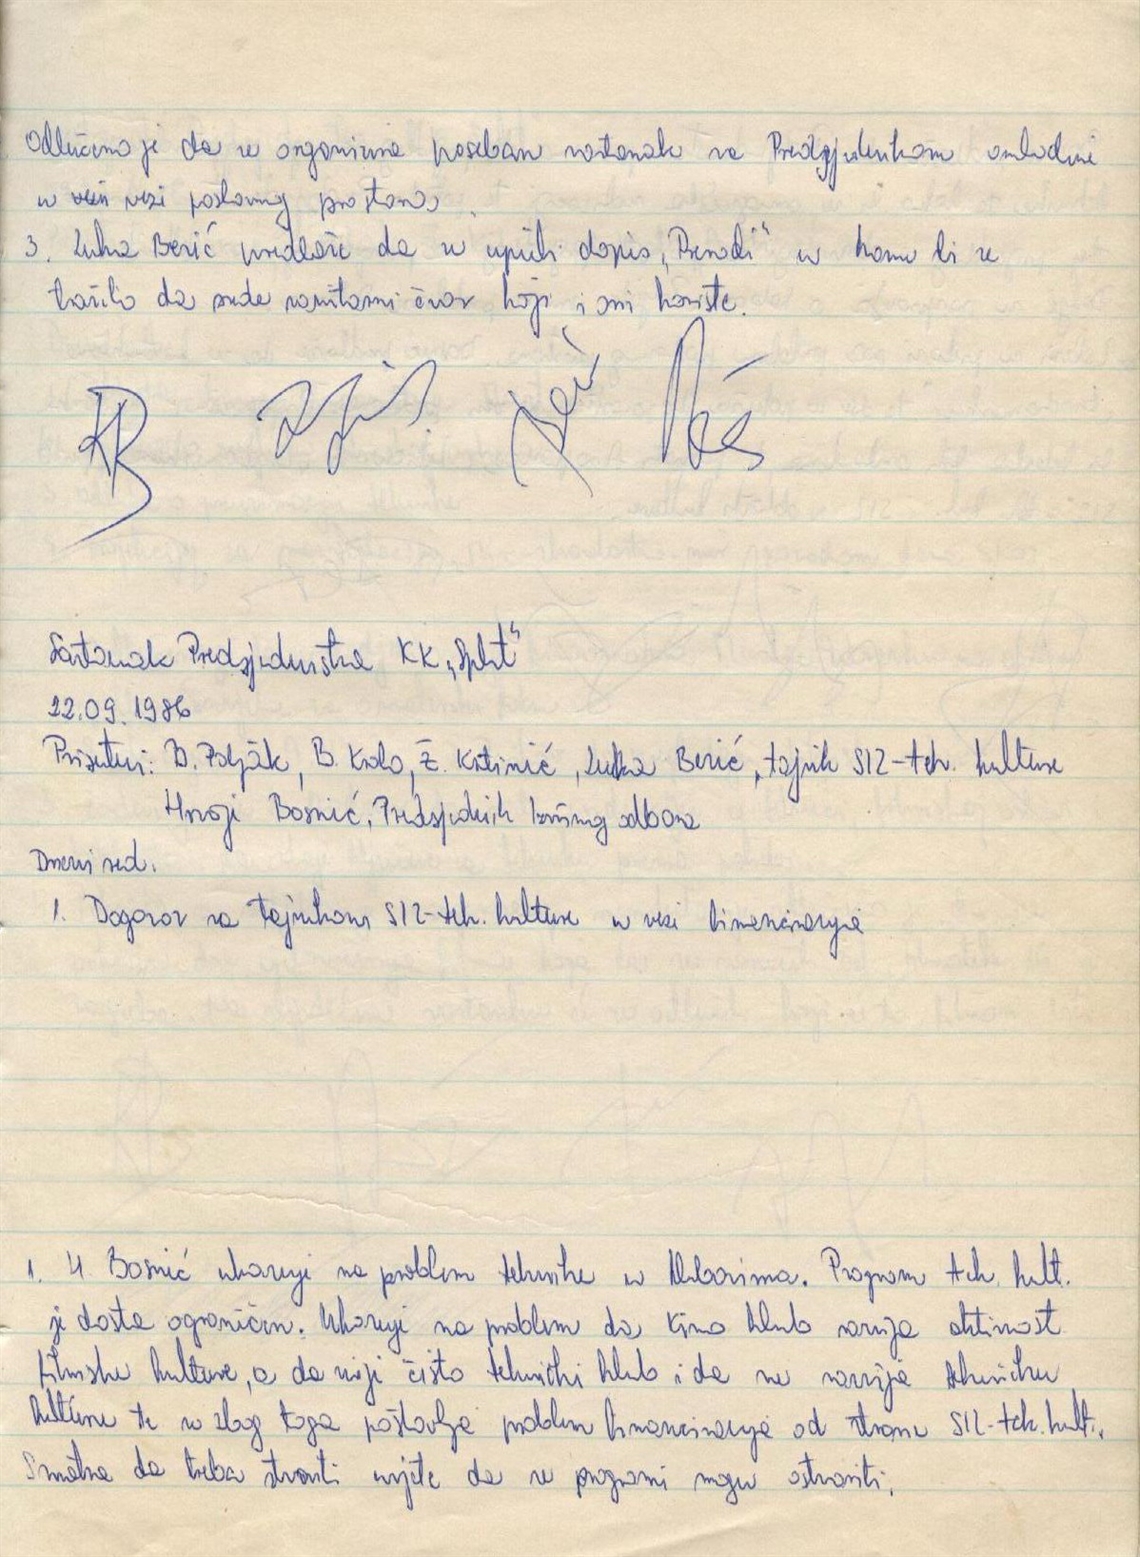 Odlučeno je da se organizira poseban sastanak sa Predsjednikom omladine
u vezi poslovnog prostora.
3. Luka Berić predlaže da se uputi dopis „Prerodi" u komu bi se
tražilo da srede sanitarni čvor koji i oni koriste.
Sastanak Predsjedništva KK „Split"
22.09.1986
Prisutni: D. Poljak, B. Krolo, Ž. Krstinić, Luka Berić, tajnik SIZ-teh. kulture
Hrvoje Bosnić, Predsjednik Izvršnog odbora
Dnevni red:
1. Dogovor sa tajnikom SIZ-teh. kulture u vezi financiranja
1. H. Bosnić ukazuje na problem tehnike u klubovima. Program teh. kult.
je dosta ograničen. Ukazuje na problem da Kino klub razvija aktivnost
filmske kulture, a da nije čisto tehnički klub i da ne razvija tehničku
kulturu te se zbog toga postavlja problem financiranja od strane SIZ-teh. kult.
Smatra da treba stvoriti uvjete da se programi mogu ostvariti.